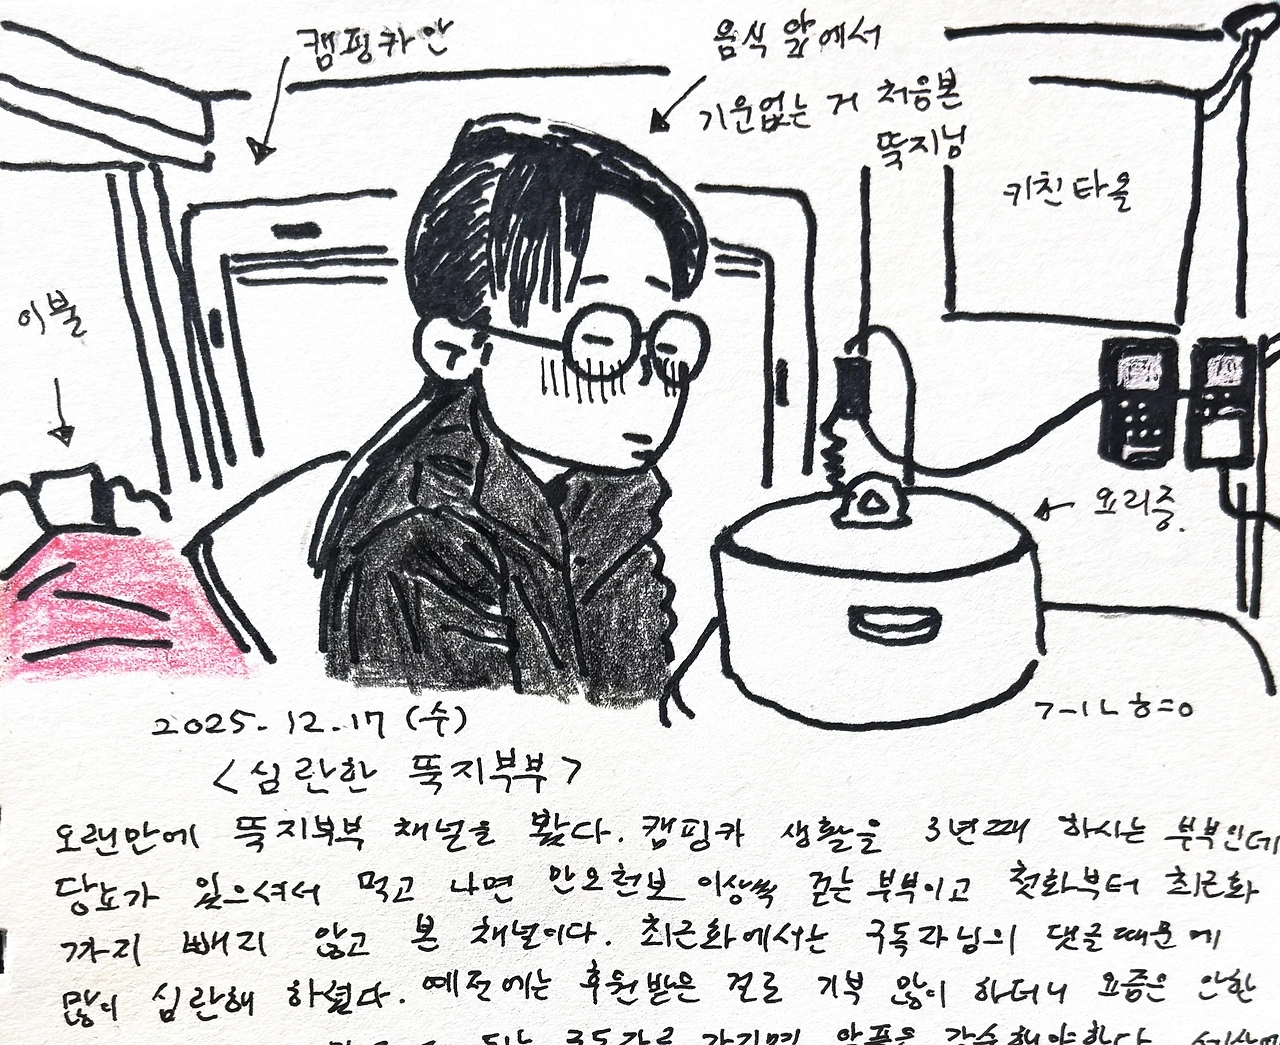 캠핑카 안
음식 앞에서
기운없는 거 처음본
뚝지님
키친타올
이불
요리중.
2025. 12. 17 (수)
<심란한 뚝지부부>
오랜만에 뚝지부부 채널을 봤다. 캠핑카 생활을 3년째 하시는 부부인데
당뇨가 있으셔서 먹고 나면 만오천보 이상씩 걷는 부부이고 첫화부터 최근화
까지 빼지 않고 본 채널이다. 최근화에서는 구독자님의 댓글때문에
많이 심란해 하셨다. 예전에는 후원받은 걸로 기부 많이 하더니 요즘은 안한